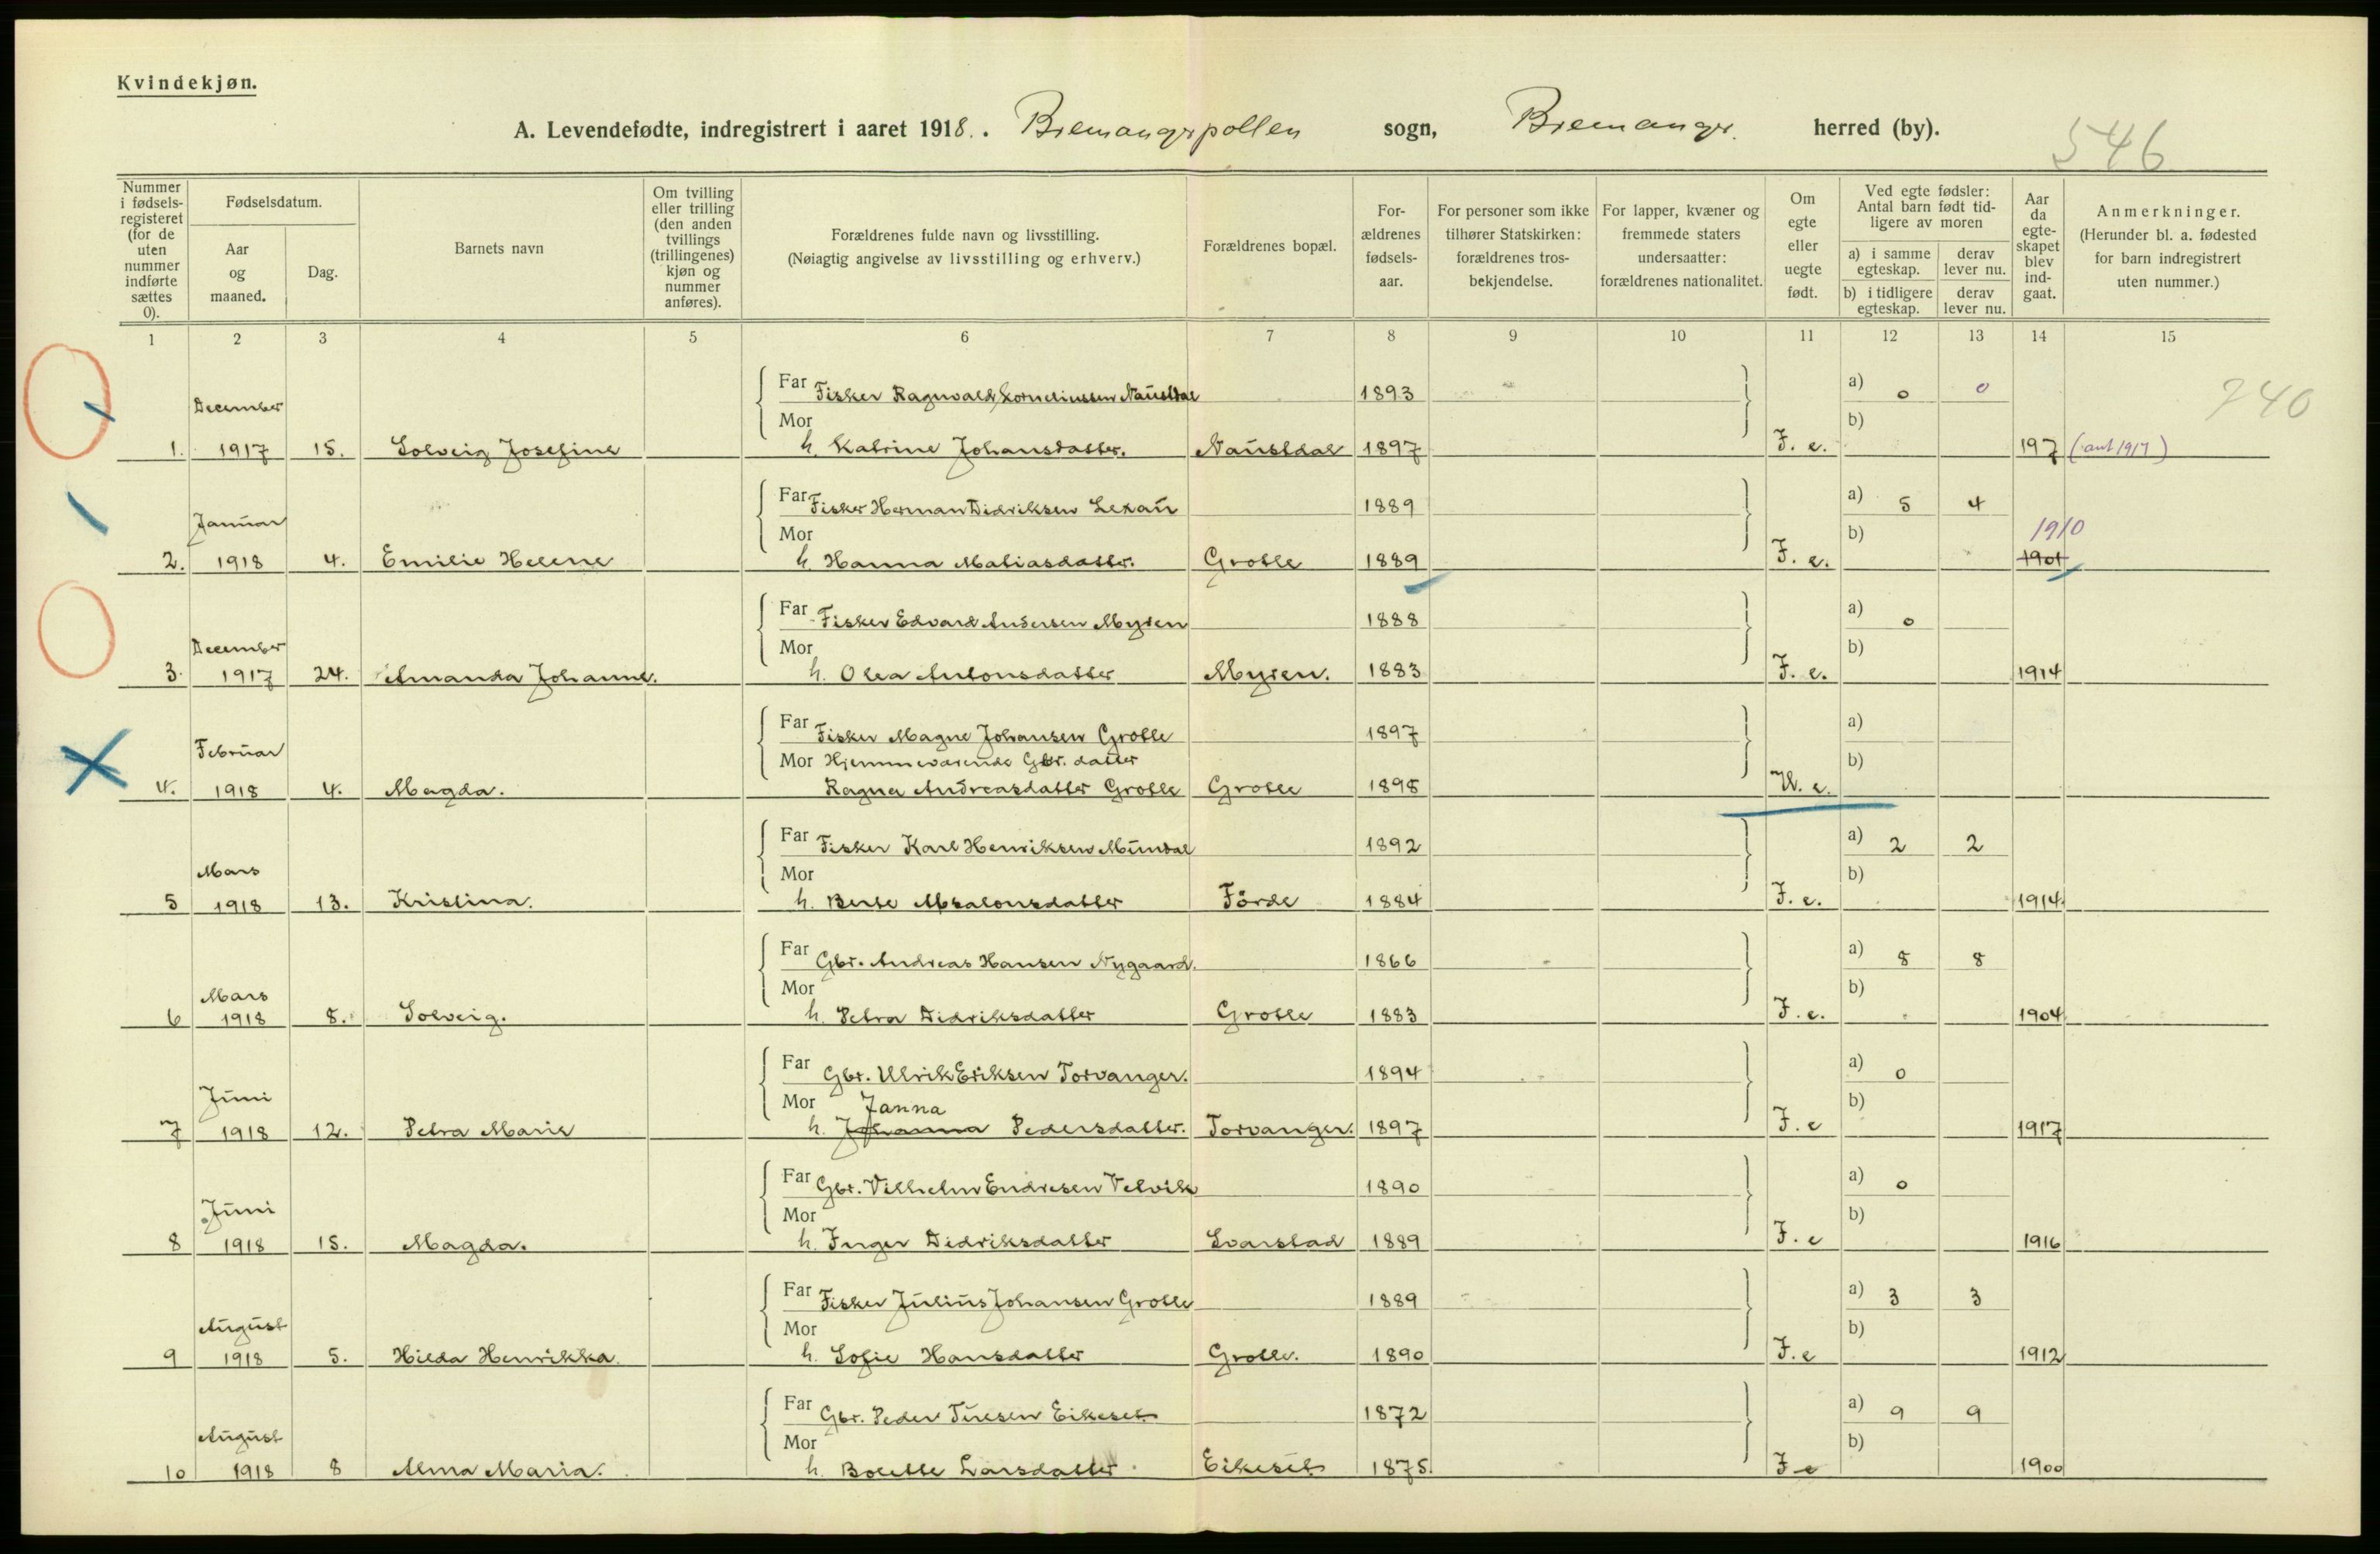 Kvindekjøn.
A. Levendefødte, indregistrert i aaret 1918. . Bremangerpollen sogn, Bremanger. herred (by).
546
Nummer i fødsels-registeret (for de uten nummer indførte sættes 0).
Fødselsdatum.
Aar og maaned.
Dag.
Barnets navn
Om tvilling eller trilling (den anden tvillings (trillingenes) kjøn og nummer anføres).
Forældrenes fulde navn og livsstilling.
(Nøiagtig angivelse av livsstilling og erhverv.)
Forældrenes bopæl.
For-ældrenes fødsels-aar.
For personer som ikke tilhører Statskirken: forældrenes tros-bekjendelse.
For lapper, kvæner og fremmede staters undersaatter: forældrenes nationalitet.
Om egte eller uegte født.
Ved egte fødsler: Antal barn født tid-ligere av moren
a) i samme egteskap.
derav lever nu.
b) i tidligere egteskap.
derav lever nu.
Aar da egte-skapet blev ind-gaat.
Anmerkninger.
(Herunder bl. a. fødested for barn indregistrert uten nummer.)
1 2 3 4 5 6 7 8 9 10 11 12 13 14 15
740
December Far Fisker Ragnvald Korneliussen Naustdal 1893 a) 0 0
Mor b)
1. 1917 15. Solveig Josefine h. Katrine Johansdatter. Naustdal 1897 F. e. 197 (ant 1917)
Januar Far Fisker Herman Didriksen Lexau 1889 a) 5 4
Mor b) 1910
2. 1918 4. Emilie Helene h. Hanna Matiasdatter. Grotle 1889 F. e. 1901
December Far Fisker Edvard Andersen Myren 1888 a) 0
Mor b)
3. 1917 24. Amanda Johanne. h. Olea Antonsdatter Myren. 1883 F. e. 1914
Februar Far Fisker Magne Johansen Grotle 1897 a)
Mor Hjemmeværende Gbr. datter b)
4. 1918 4. Magda. Ragna Andreasdatter Grotle Grotle 1898 U. e.
Mars Far Fisker Karl Henriksen Mundal 1892 a) 2 2
Mor b)
5 1918 13. Kristina. h. Berte Absalonsdatter Förde 1884 F. e. 1914.
Mars Far Gbr. Andreas Hansen Nygaard. 1866 a) 8 8
Mor b)
6 1918 8. Solveig. h. Petra Didriksdatter Grotle 1883 F. e. 1904
Juni Far Gbr. Ulrik Eriksen Torvanger. 1894 a) 0
Mor Janna b)
7 1918 12. Petra Marie h. Johanna Pedersdatter. Torvanger. 1897 F. e 1917
Juni Far Gbr. Vilhelm Endresen Vetvik 1890 a) 0
Mor b)
8 1918 15. Magda. h. Inger Didriksdatter Svarstad 1889 F. e 1916
August Far Fisker Julius Johansen Grotle 1889 a) 3 3
Mor b)
9 1918 5. Hilda Henrikka. h. Sofie Hansdatter Grotle. 1890 F. e 1912
August Far Gbr. Peder Turesen Eikeset 1872 a) 9 9
Mor b)
10 1918 8 Alma Maria. h. Bolette Larsdatter Eikeset 1875. F e 1900